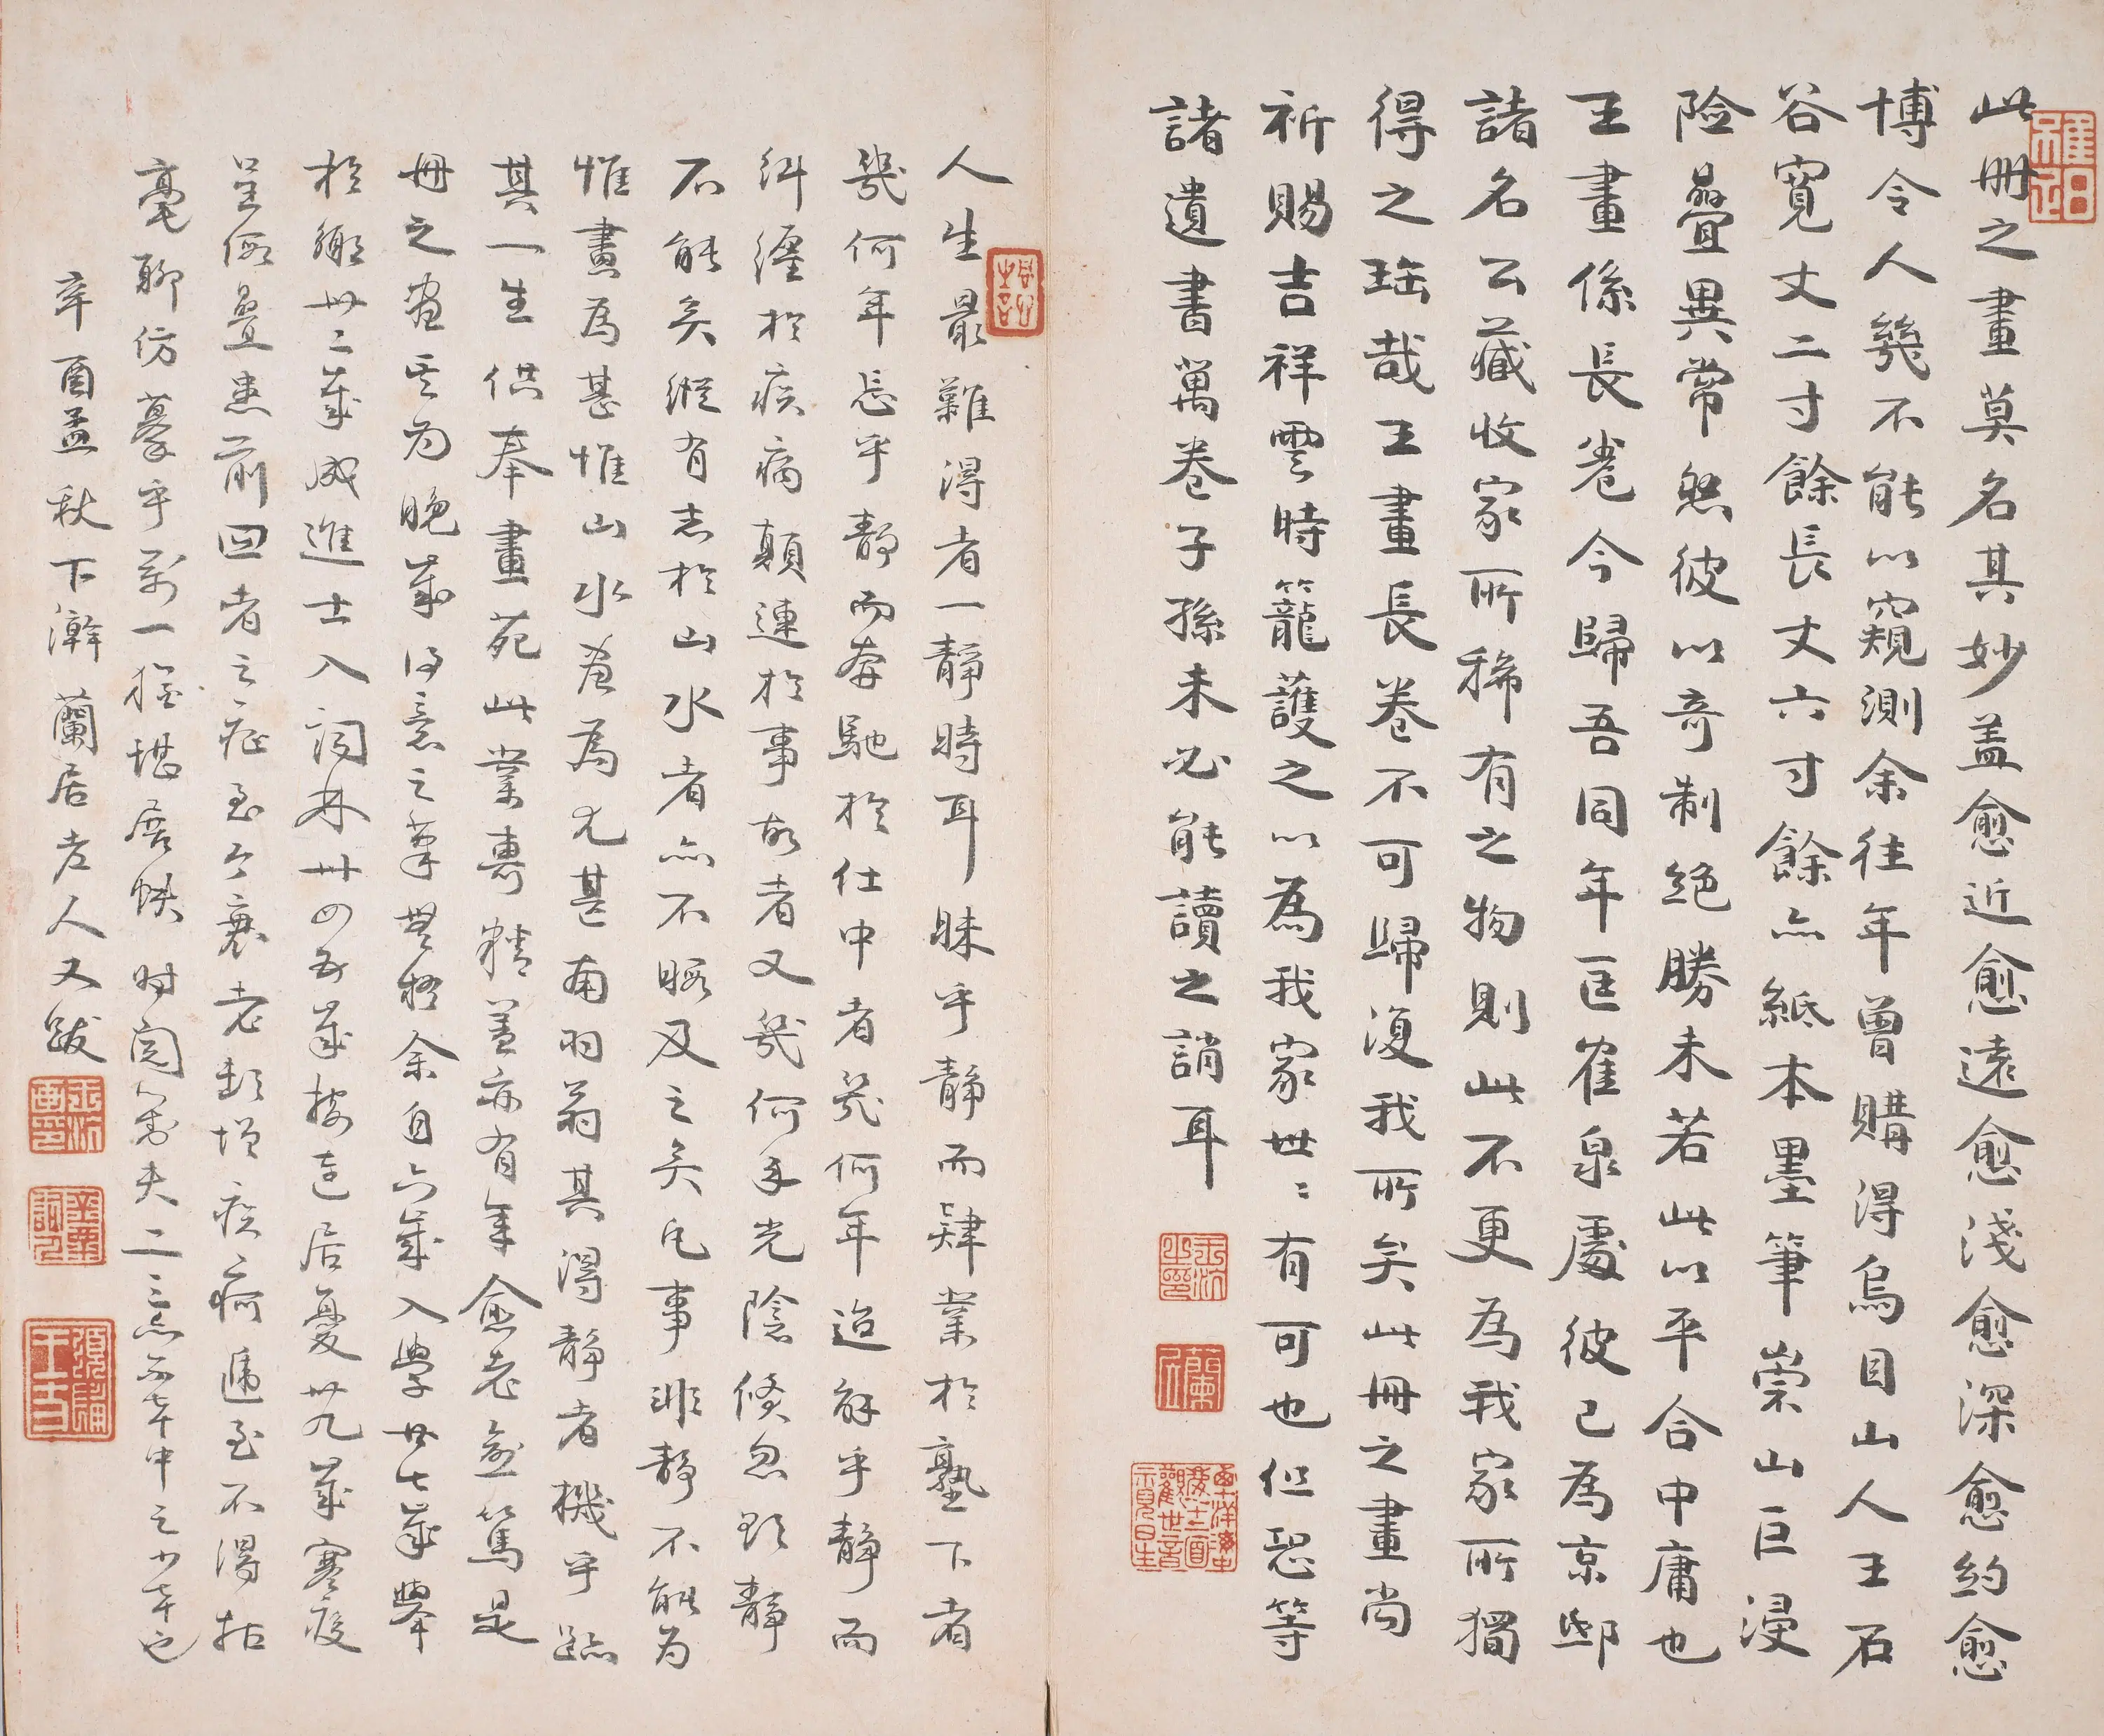 此冊之畫莫名其妙盖愈近愈遠愈淺愈深愈約愈
博令人幾不能以窺測余往年曾購得烏目山人王石
谷寬丈二寸餘長丈六寸餘亦紙本墨筆崇山巨浸
險疊異常然彼以奇制絕勝未若此以平合中庸也
王畫係長卷今歸吾同年匡雀泉處彼已為京邸
諸名公藏收家所稀有之物則此不更為我家所獨
得之珤哉王畫長卷不可歸復我所矣此冊之畫尚
祈賜吉祥雲時籠護之以為我家世〻有可也但恐等
諸遺書萬卷子孫未必能讀之誚耳
人生最難得者一靜時耳昧乎靜而肄業於塾下者
幾何年忘乎靜而奔馳於仕中者幾何年迨解乎靜而
糾纏於疾病顛連於事故者又幾何年光陰倏忽欲靜
不能矣縱有志於山水者亦不暇及之矣凡事非靜不能為
惟畫為甚惟山水畫為尤甚南羽翁其得靜者機乎跡
其一生供奉畫苑此業專精蓋亦有年愈老愈篤是
冊之畫定為晚歲得意之筆無疑余自六歲入學廿七歲舉
於鄉卅二歲成進士入詞林卅四五歲接連居憂卅九歲寒疫
呈傷疊患前四者之症至今衰老類增疾痾遞至不得拈
毫聊仿摹乎萬一惟堪展帙時閱箇夫二三忘不辛中之少辛也
辛酉孟秋下澣蘭居老人又跋